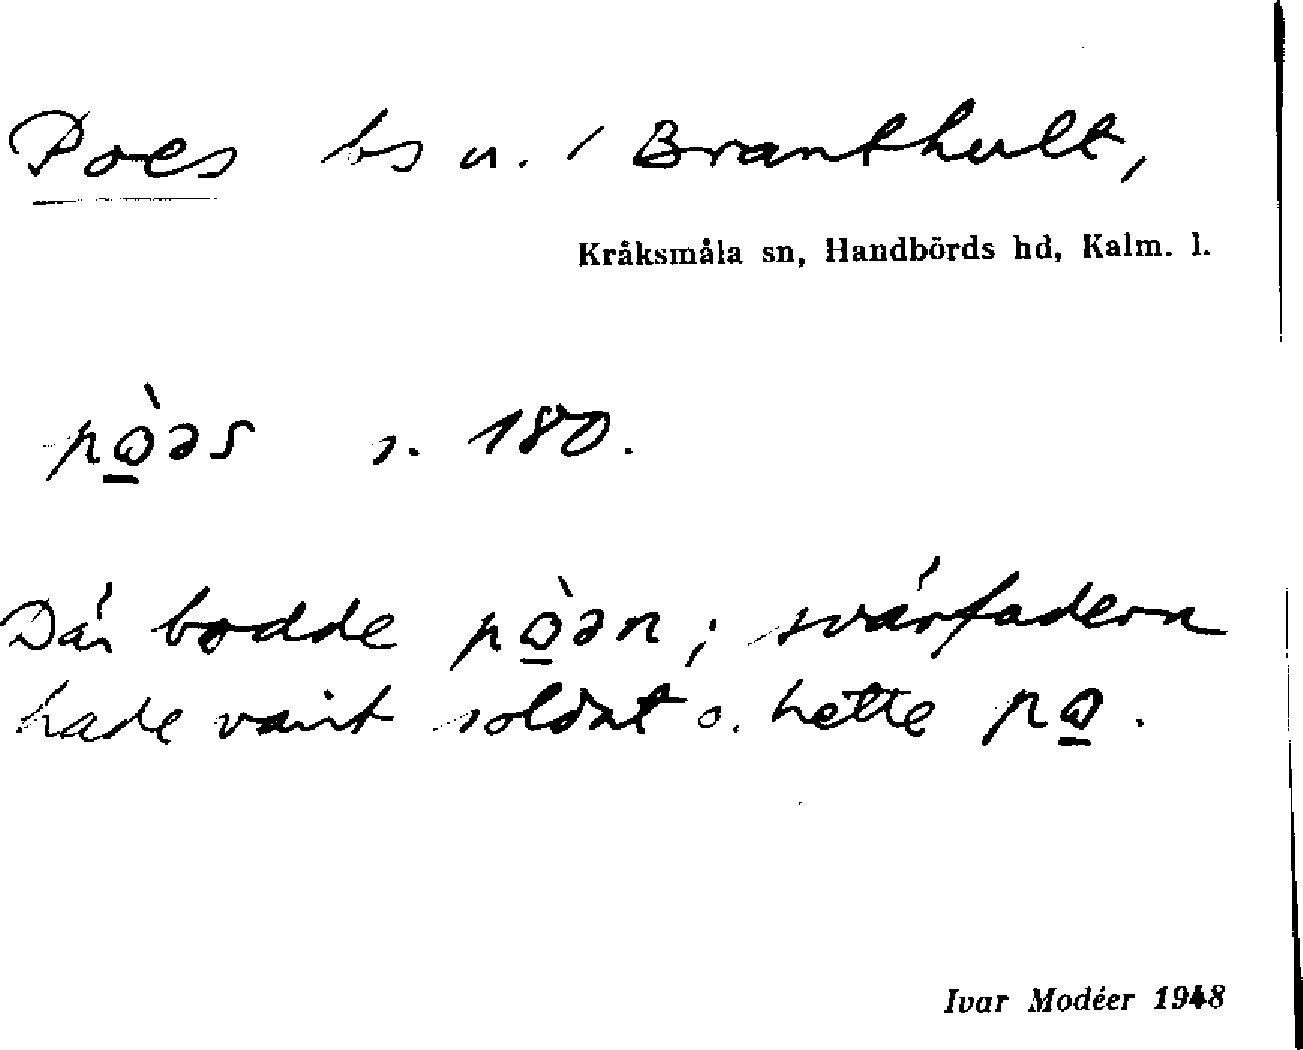 Poes bs u. / Branthult,
Kråksmåla sn, Handbörds hd, Kalm. l.
pòəs s. 180.
Där bodde pòən; svärfadern
hade varit soldat o. hette po.
Ivar Modéer 1948